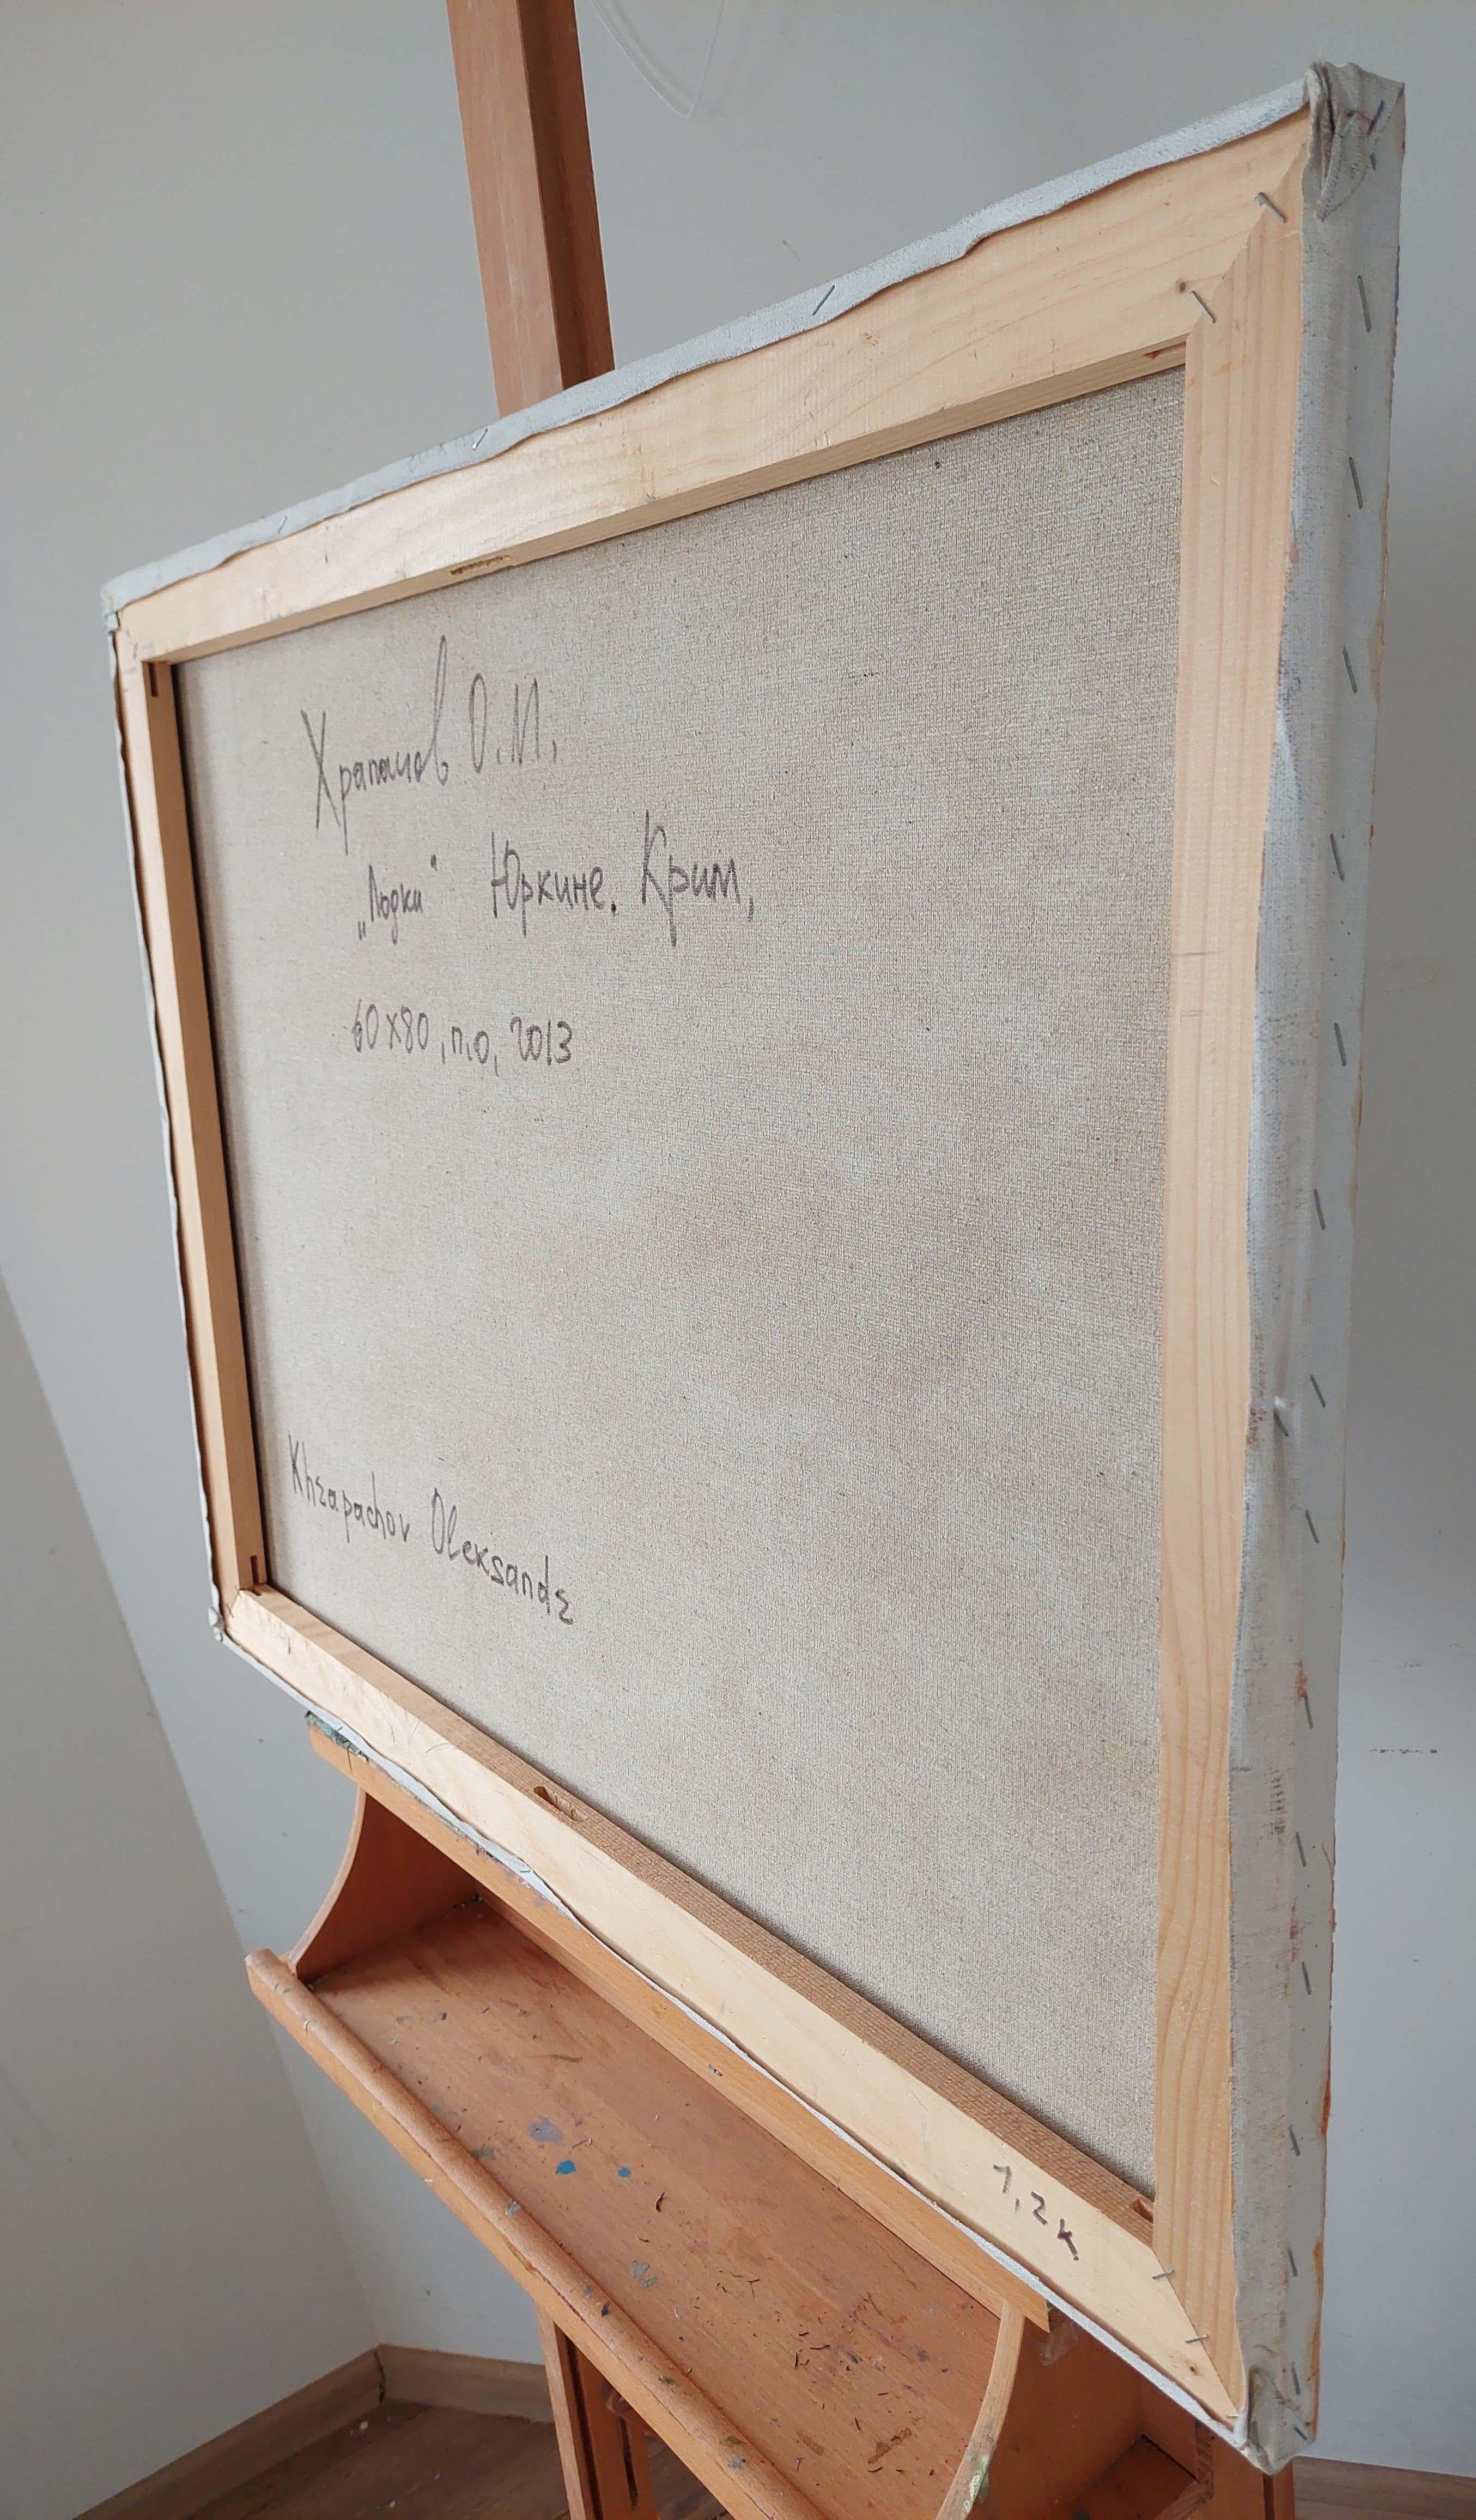 Храпачов О.И.
„Лодки" Юркине. Крим,
60x80, п.о, 2013
Khrapachov Oleksandr
1,2к